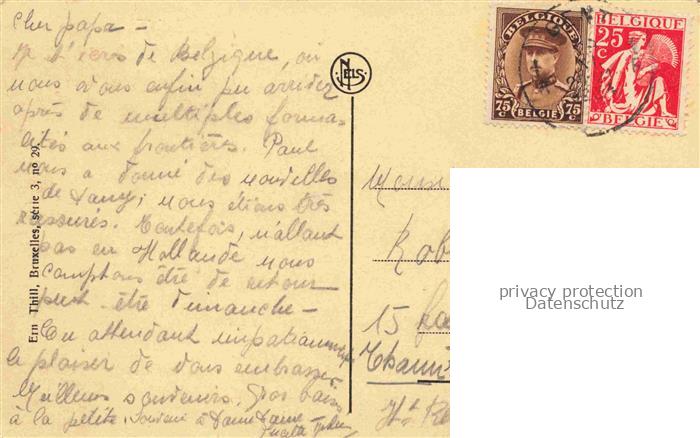 Cher papa –
Je t'écris de Belgique, où
nous avons enfin pu arriver
après de multiples forma-
lités aux frontières. Paul
nous a donné des nouvelles
de Dany; nous étions très
rassurés. Toutefois, n'allant
pas en Hollande nous
comptons être de retour
peut être dimanche –
En attendant impatiemment
le plaisir de vous embrasser
Meilleurs souvenirs. Gros baisers
à la petite. Souvenir à
Ern Thill, Bruxelles, série 3, no 29.
NELS
BELGIQUE
75 C 75 C
BELGIE
BELGIQUE
25 C
BELGIE
Mons
Rob
15
Hte
privacy protection
Datenschutz